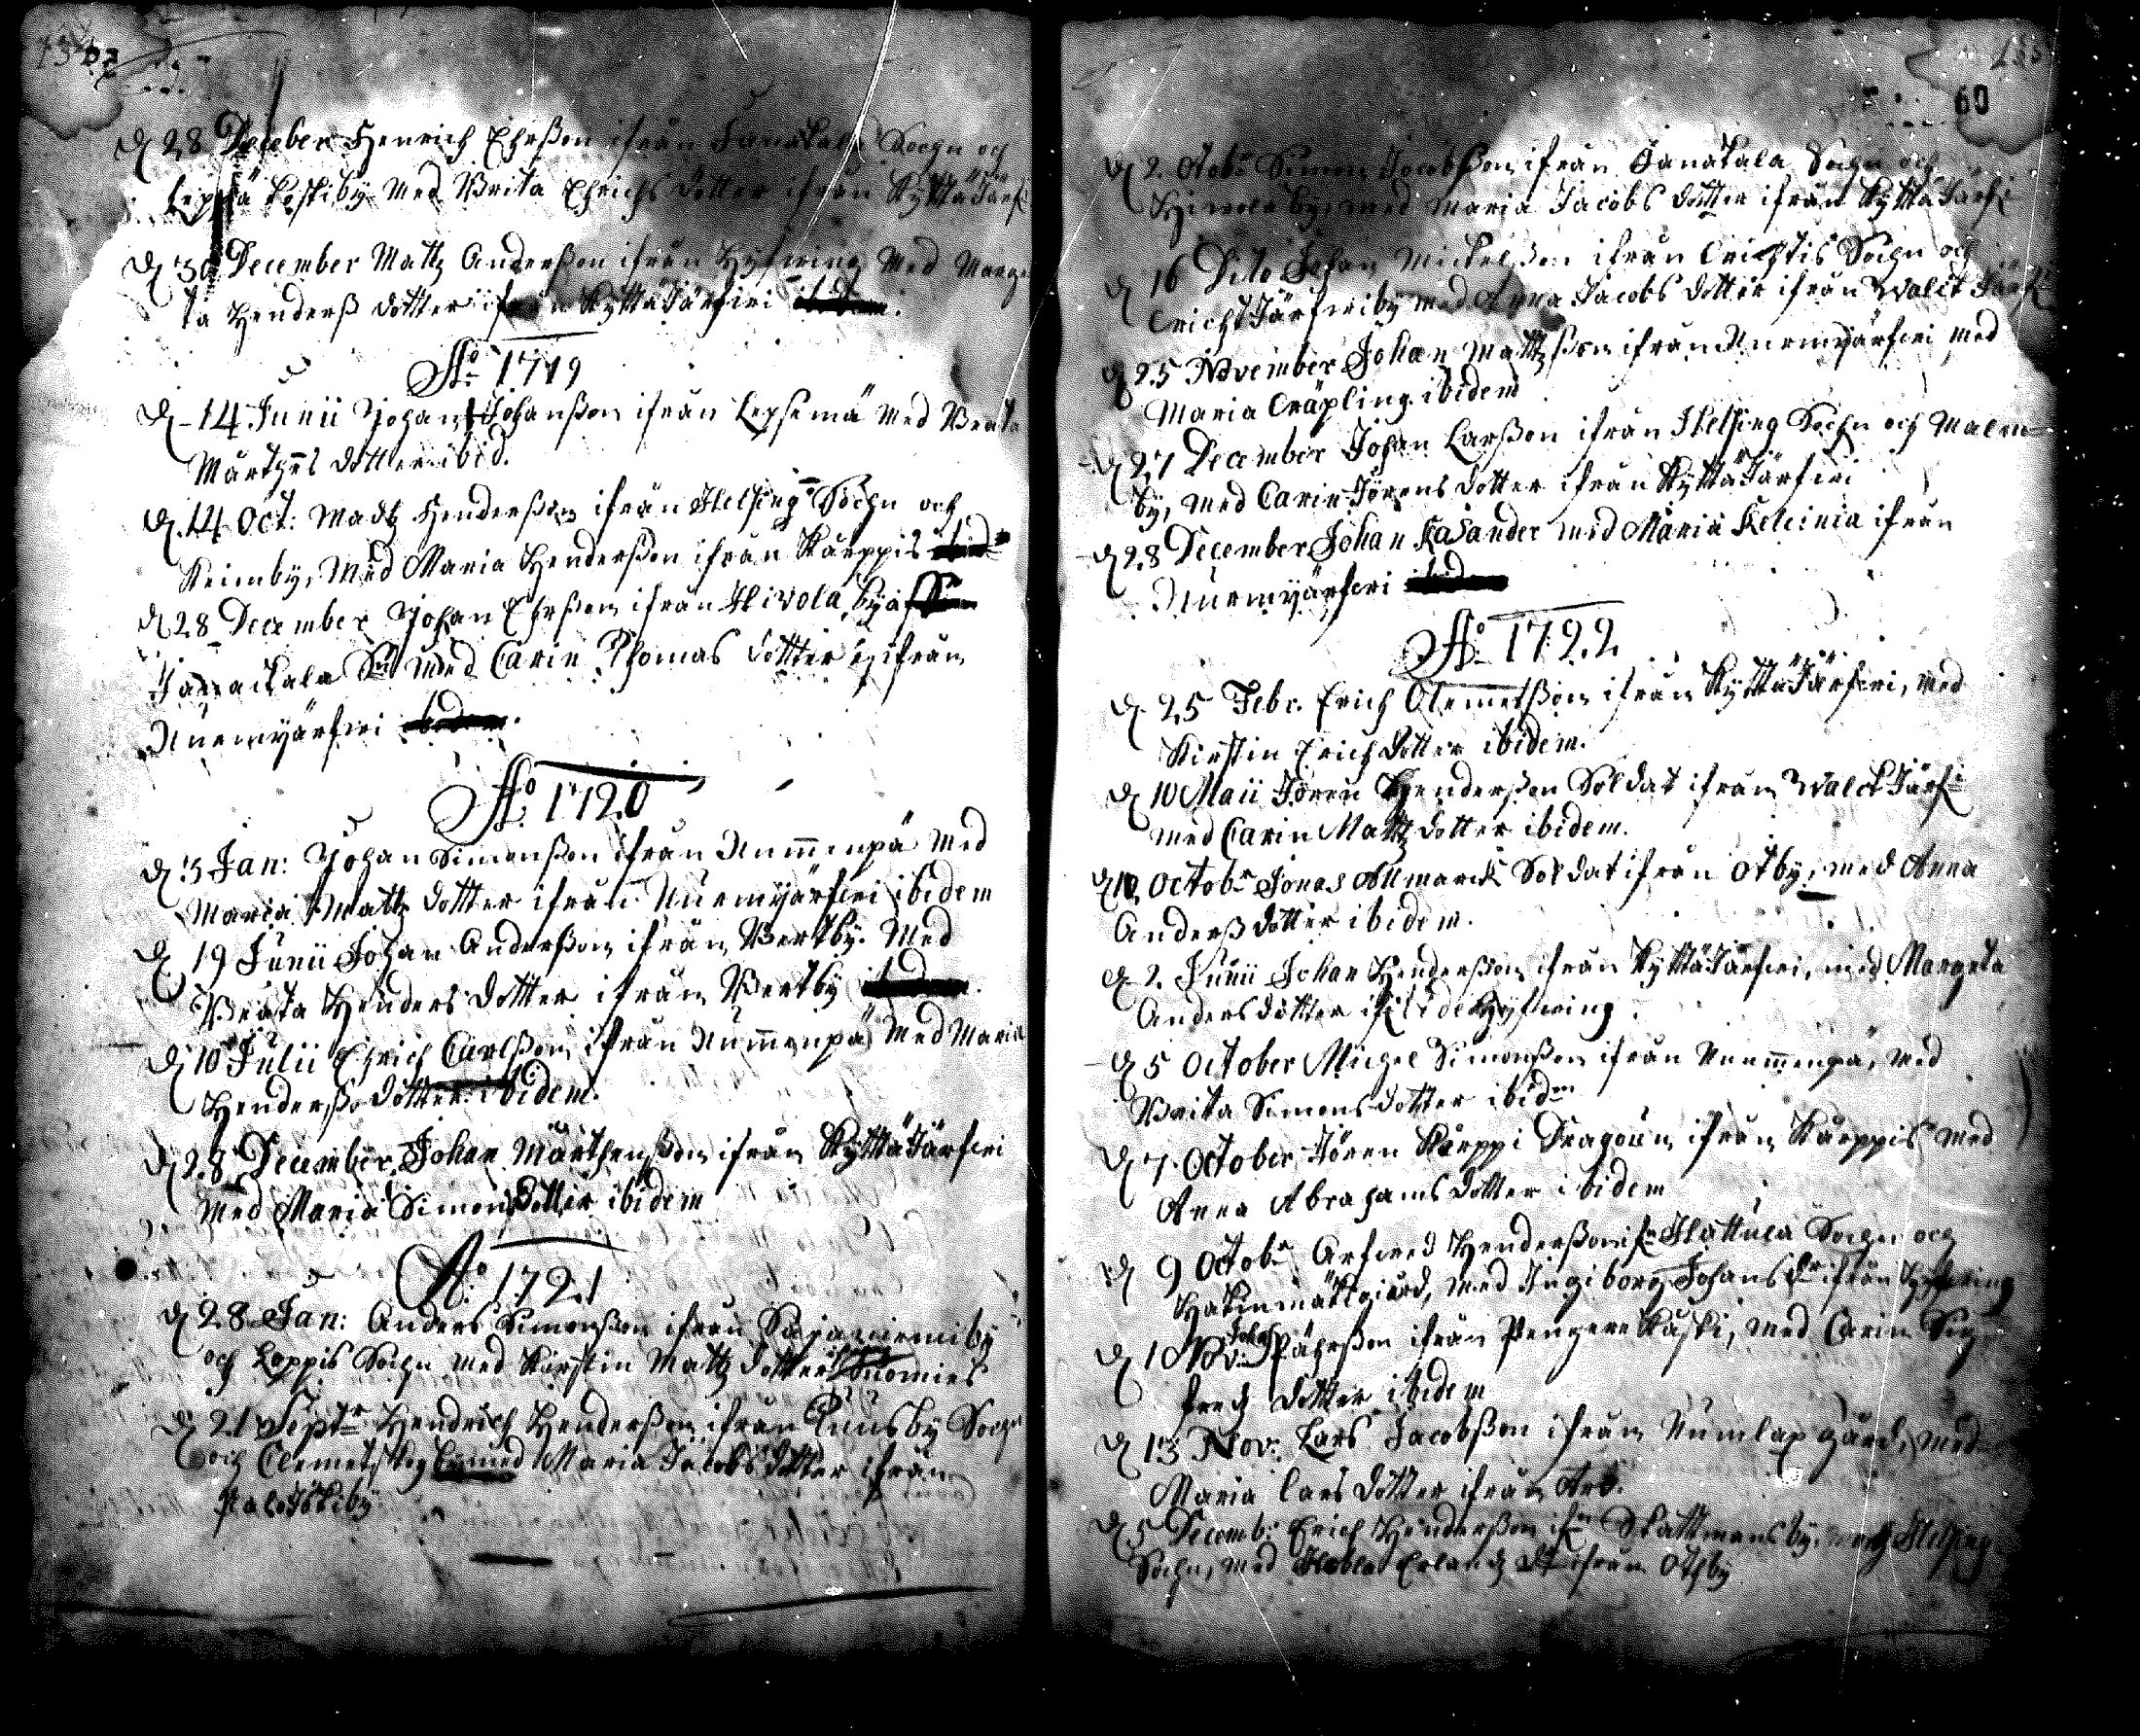 D 28 December Henrich Ehrßon ifrån Janakala Sochn och
Leppä koskiby Med Brita Ehrichs dotter ifrån KyttäJärf:
D 30 December Mattz Anderßon ifrån Hyfwing Med Marge
ta Henderß dotter ifrån KyttäJärfwi
Ao 1719
D 14 Junii Johan Johanßon ifrån Lepsemä Med Beata
Mårthens dotter ibid.
D. 14 Oct: Madtz Henderßon ifrån Helsing Sochn och
Keimby, Med Maria Henderßon ifrån Kärppis
D 28 December Johan Ehrßon ifrån Hivola by af
Janackala Sn med Carin Thomas dotter ifrån
Nuemyärfwi
Ao 1720
D 3 Jan: Johan Simonßon ifrån Nummenpä Med
Maria Mattz dotter ifrån Nuemyärfwi ibidem
D 19 Junii Johan Anderßon ifrån Bertby. Med
Beata Henders dotter ifrån Bertby
D 10 Julii Ehrich Carlßon ifrån Nummenpä Med Maria
Henderß dotter ibidem.
D 28 December Johan Mårthenßon ifrån KyttäJärfwi
Med Maria Simons dotter ibidem
Ao 1721
D 28 Jan: Anders Simonßon ifrån Sajaniemiby
och Loppis Sochn med Kirstin Mattz dotter
D 21 Septr Hendrich Henderßon ifrån Puusby Soch
och Clemetskog med Maria Jacobs dotter ifrån
Palojokiby
60
D 2. Octobr Simon Jacobßon ifrån Janakala Sochn och
Hiwola by, med Maria Jacobs dotter ifrån KyttäJärfwi
D 16 Dito Johan Mickelßon ifrån Wichtis Sochn och
med Anna Jacobs dotter ifrån Walckjärf
D 25 November Johan Mattzßon ifrån Nuemyärfwi med
Maria Cräpling ibidem
D 27 December Johan Larßon ifrån Helsing Sochn och Malm
by, med Carin Jörens dotter ifrån KyttäJärfwi
D 28 December Johan Kasander med Maria Kelcinia ifrån
Nuemyärfwi
Ao 1722
D. 25 Febr. Erich Clemetßon ifrån KyttäJärfwi, Med
Kirstin Erich dotter ibidem.
D 10 Maii Jören Henderßon Soldat ifrån WalckJärf:
med Carin Mattz dotter ibidem.
D 10 Octobr Jonas Allmarck Soldat ifrån Otby, med Anna
Anderß dotter ibidem.
D 2. Junii Johan Henderßon ifrån KyttäJärfwi, med Margeta
Anders dotter Hyfwing.
D 5 October Michel Simonßon ifrån Nuemmenpä, Med
Brita Simons dotter ibidm
D 7 October Jören Kärppi Dragoun ifrån Kärppis Med
Anna Abrahams dotter ibidem
D 9 Octobr Arfwed Henderßon ifn Hattula Sochn och
med Ingeborg Johans dr ifrån Hyfwing
D 10 Nov: Johan Påhrßon ifrån Pengerekåski, med Carin Sig
freds dotter ibidem
D 13 Nov: Lars Jacobßon ifrån Numlax gård, med
Maria Lars dotter ifrån
D 5 Decemb: Erich Henderßon ifn Skattmansby, och Helsing
Sochn, med Hebla Erlandz dr ifrån Othby